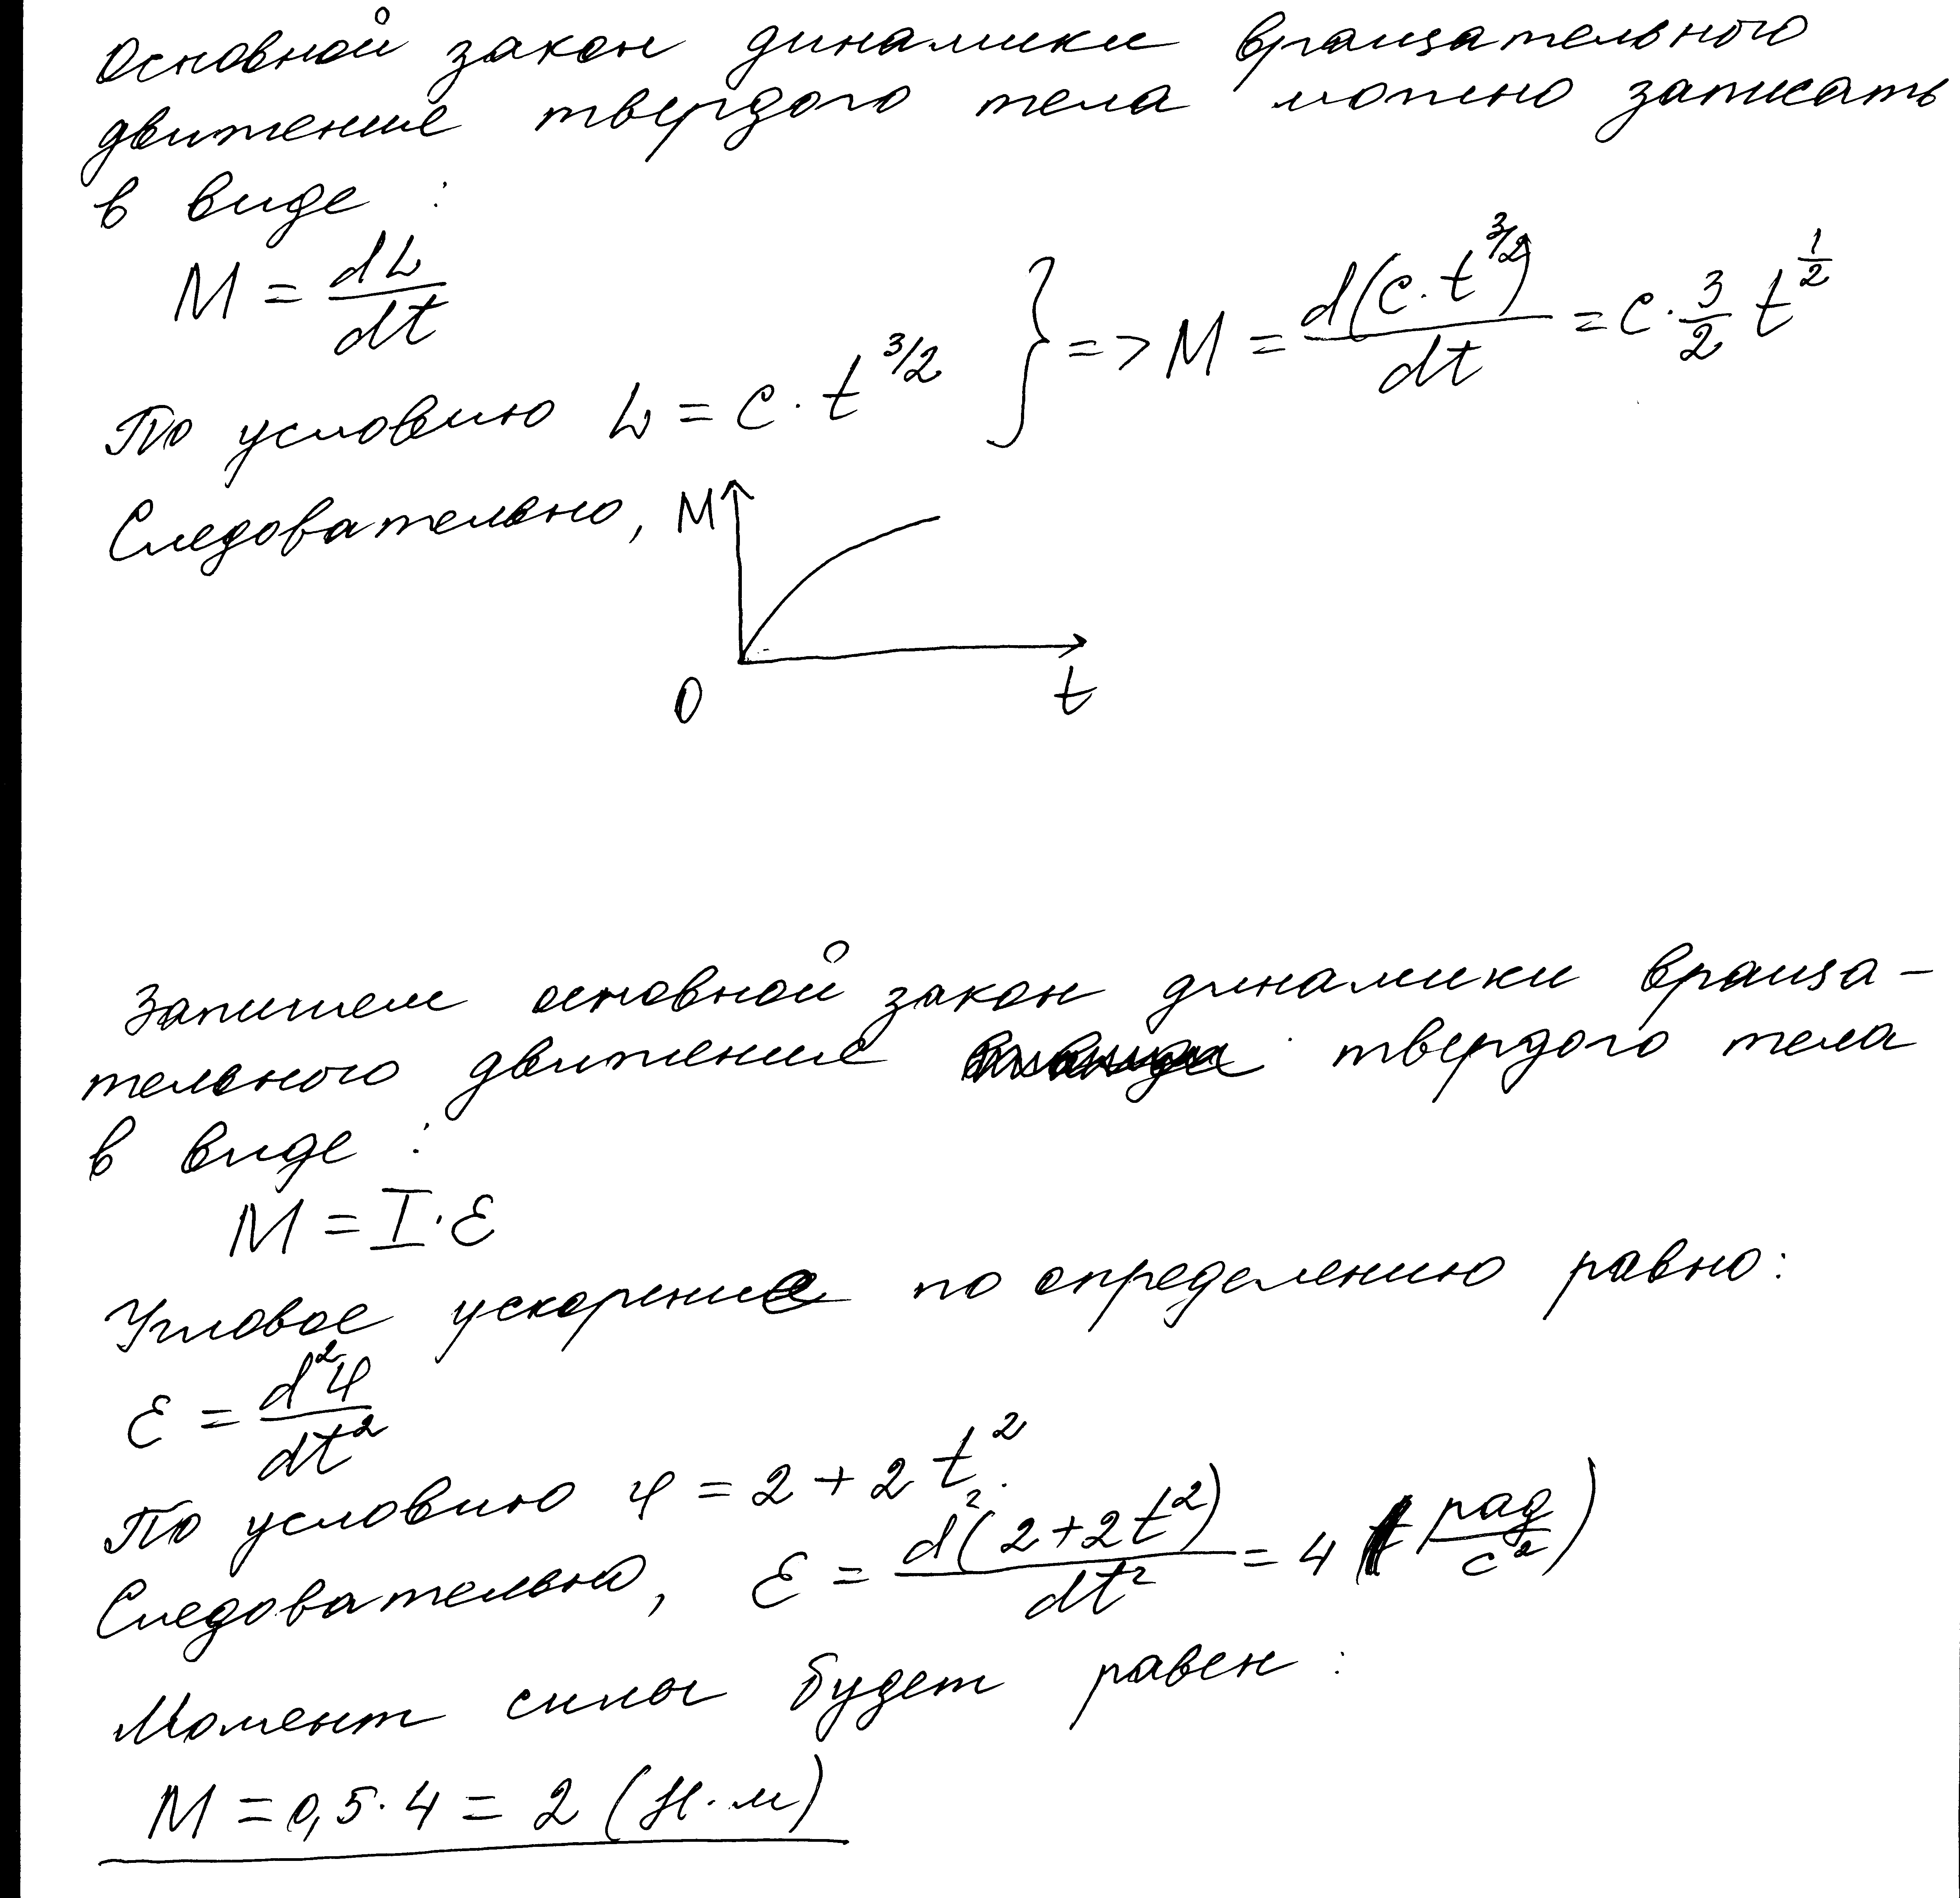 Основной закон динамики вращательного
движение твердого тела можно записать
в виде :
M = dL/dt
По условию L = c · t^3/2 } => M = d(c · t^3/2)/dt = c · 3/2 t^1/2
Следовательно, M
0 t
Запишем основной закон динамики враща-
тельного движение твердого тела
в виде :
M = I · ε
Угловое ускорение по определению равно:
ε = d²φ/dt²
По условию φ = 2 + 2 t².
Следовательно, ε = d²(2+2t²)/dt² = 4 (рад/с²)
Момент силы будет равен :
M = 0,5 · 4 = 2 (Н · м)